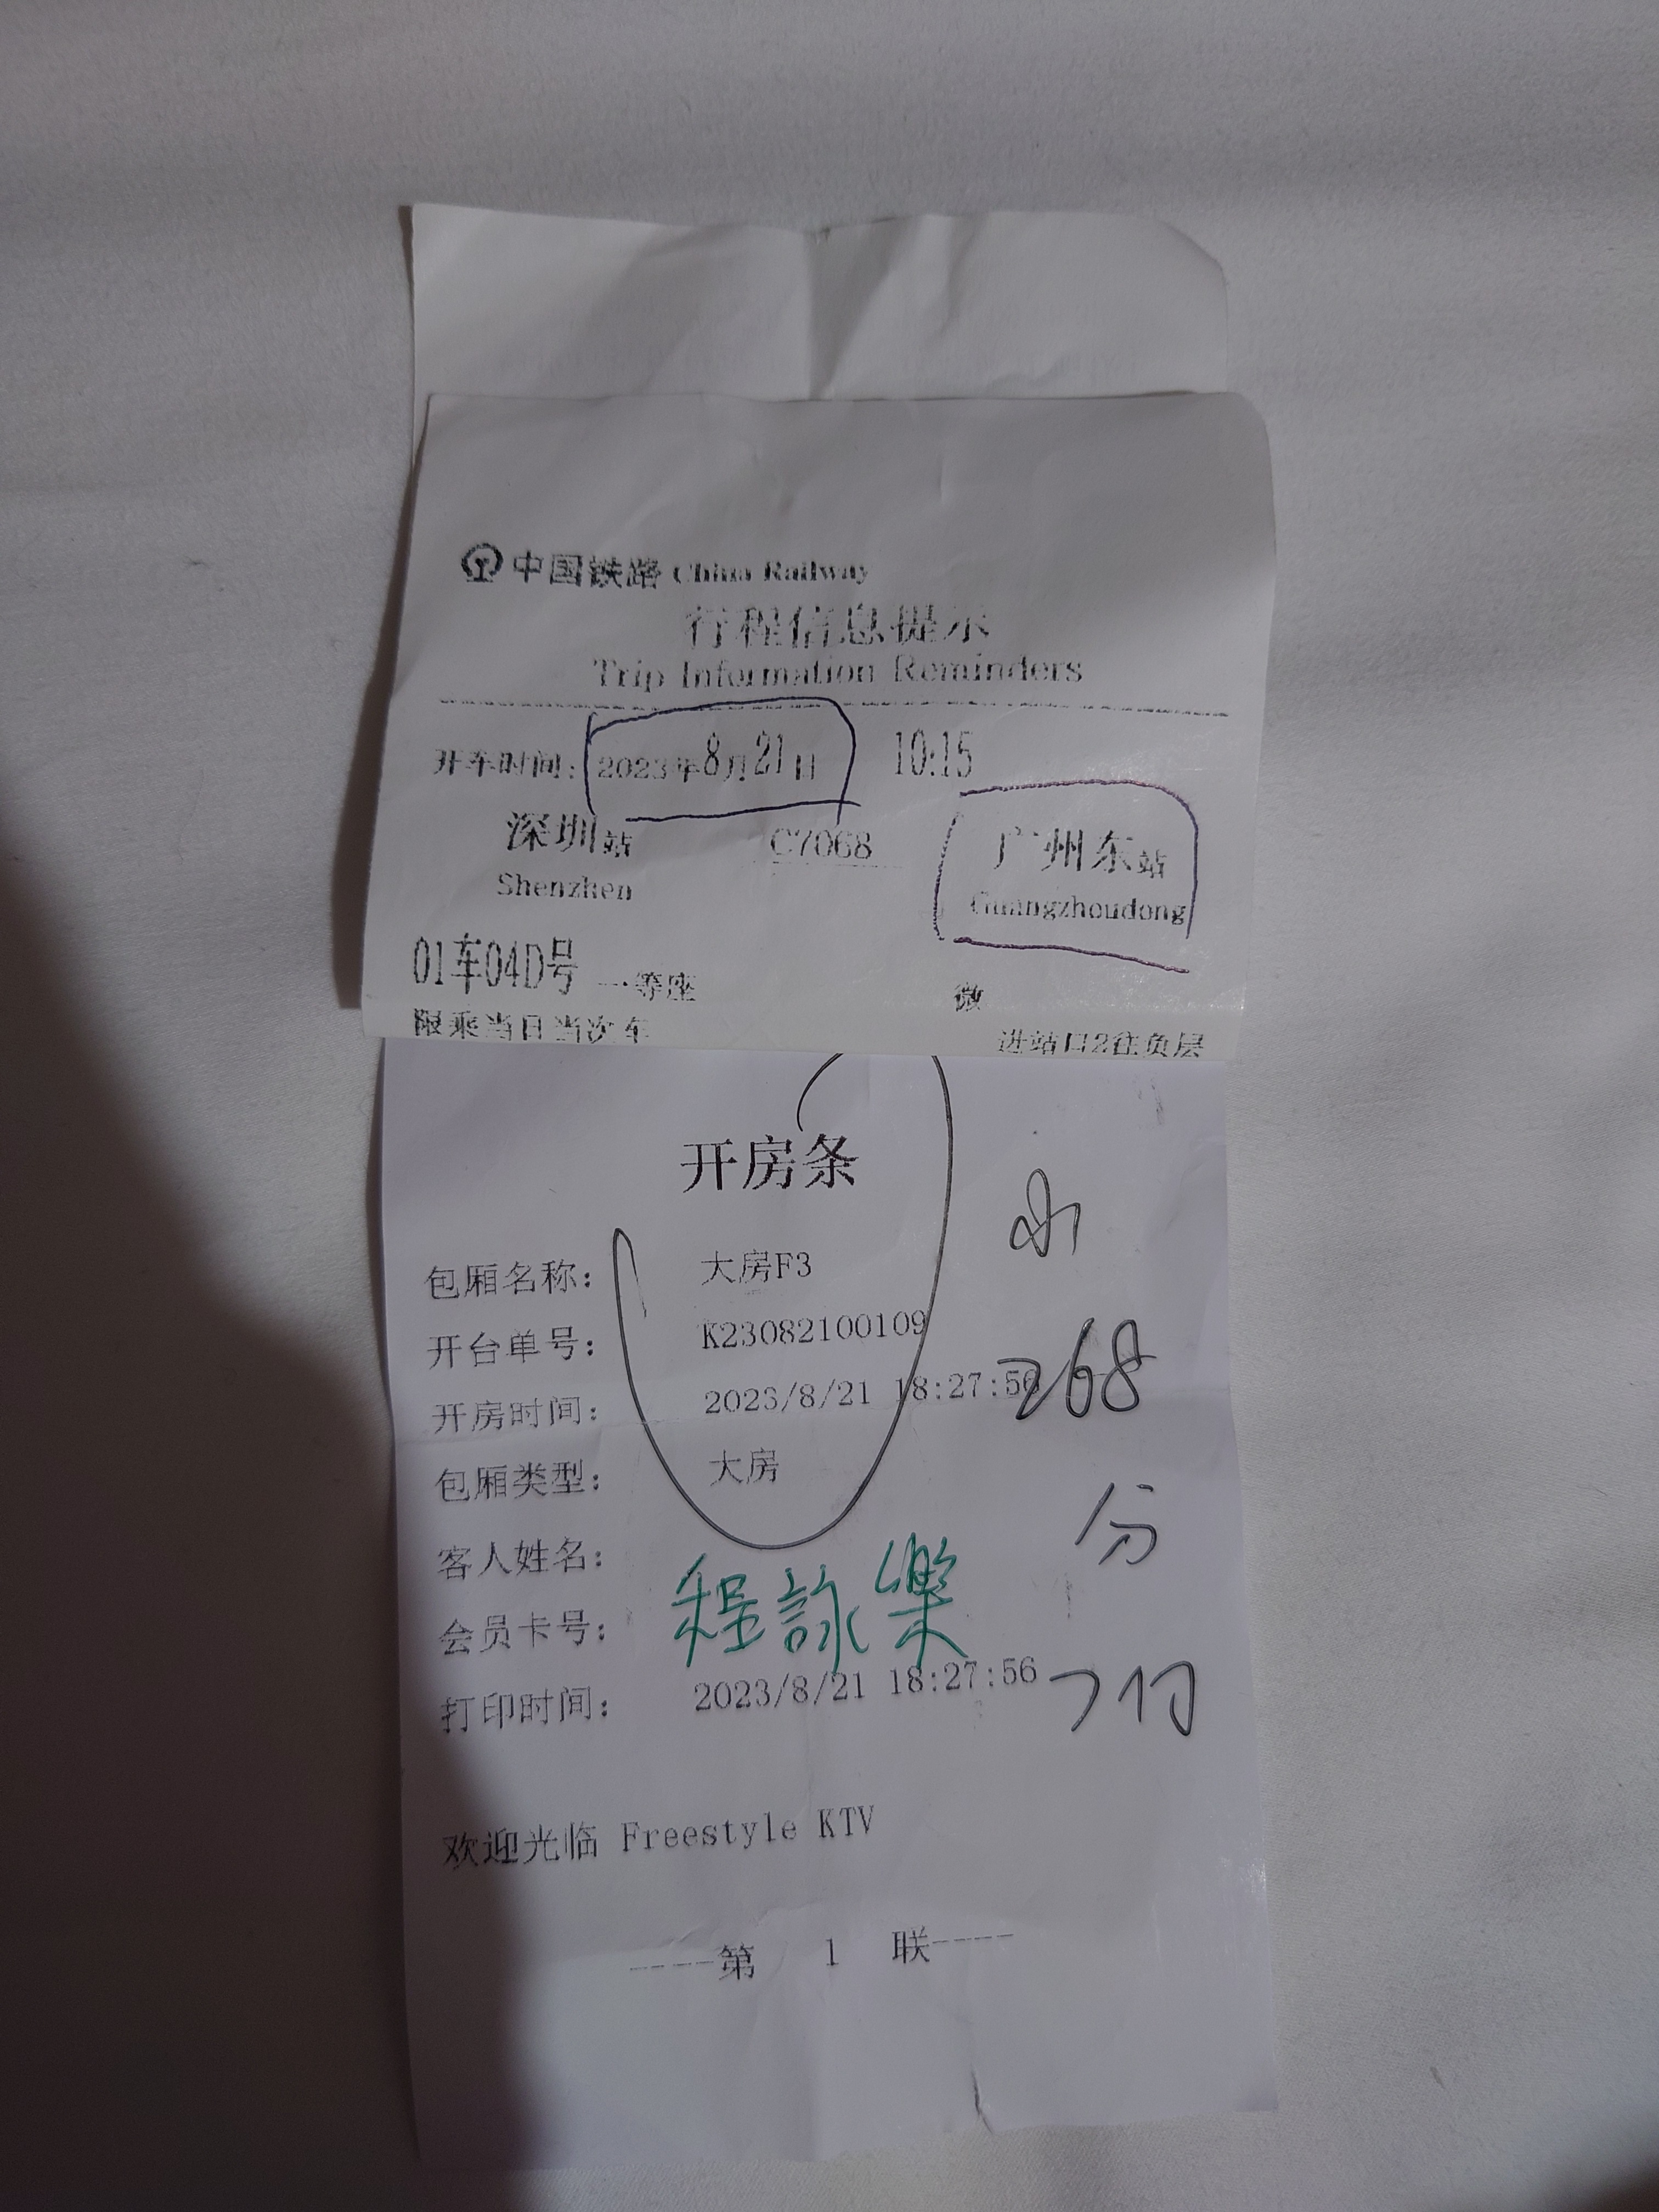 中国铁路 China Railway
行程信息提示
Trip Information Reminders
开车时间: 2023年8月21日 10:15
深圳站 C7068 广州东站
Shenzhen Guangzhoudong
01车04D号 一等座
微
限乘当日当次车 进站口2往负层
开房条
包厢名称: 大房F3
开台单号: K23082100109
开房时间: 2023/8/21 18:27:56
268
包厢类型: 大房
分
客人姓名:
程詠樂
会员卡号:
打印时间: 2023/8/21 18:27:56
欢迎光临 Freestyle KTV
----第 1 联----